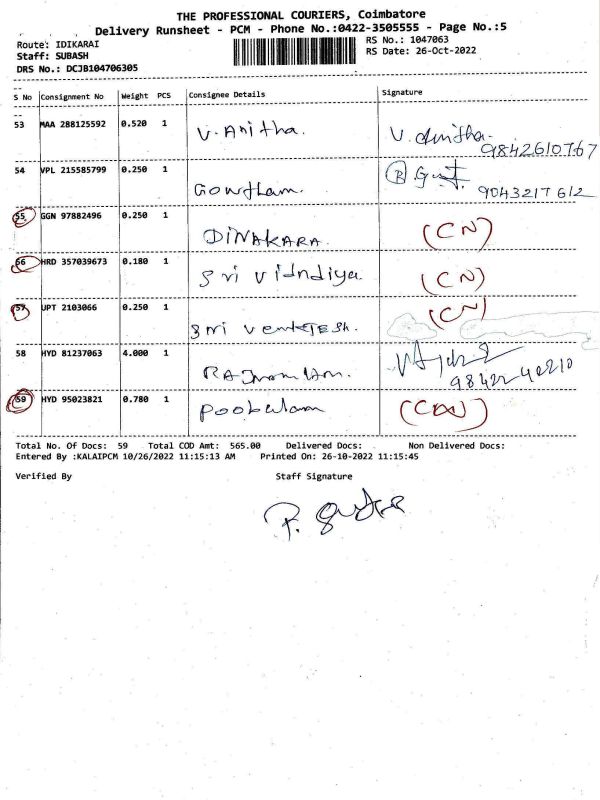 THE PROFESSIONAL COURIERS, Coimbatore
Delivery Runsheet - PCM - Phone No.:0422-3505555 - Page No.:5
Route: IDIKARAI RS No.: 1047063
Staff: SUBASH RS Date: 26-Oct-2022
DRS No.: DCJB104706305
S No Consignment No Weight PCS Consignee Details Signature
53 MAA 288125592 0.520 1 V. Anitha. V. Anitha.
9842610767
54 VPL 215585799 0.250 1 Gowtham.
9043217612
55 GGN 97882496 0.250 1 DINAKARA (CN)
56 HRD 357039673 0.180 1 Sri (CN)
57 UPT 2103066 0.250 1 Sri (CN)
58 HYD 81237063 4.000 1
98422-40210
59 HYD 95023821 0.780 1
Total No. Of Docs: 59 Total COD Amt: 565.00 Delivered Docs: Non Delivered Docs:
Entered By :KALAIPCM 10/26/2022 11:15:13 AM Printed On: 26-10-2022 11:15:45
Verified By Staff Signature